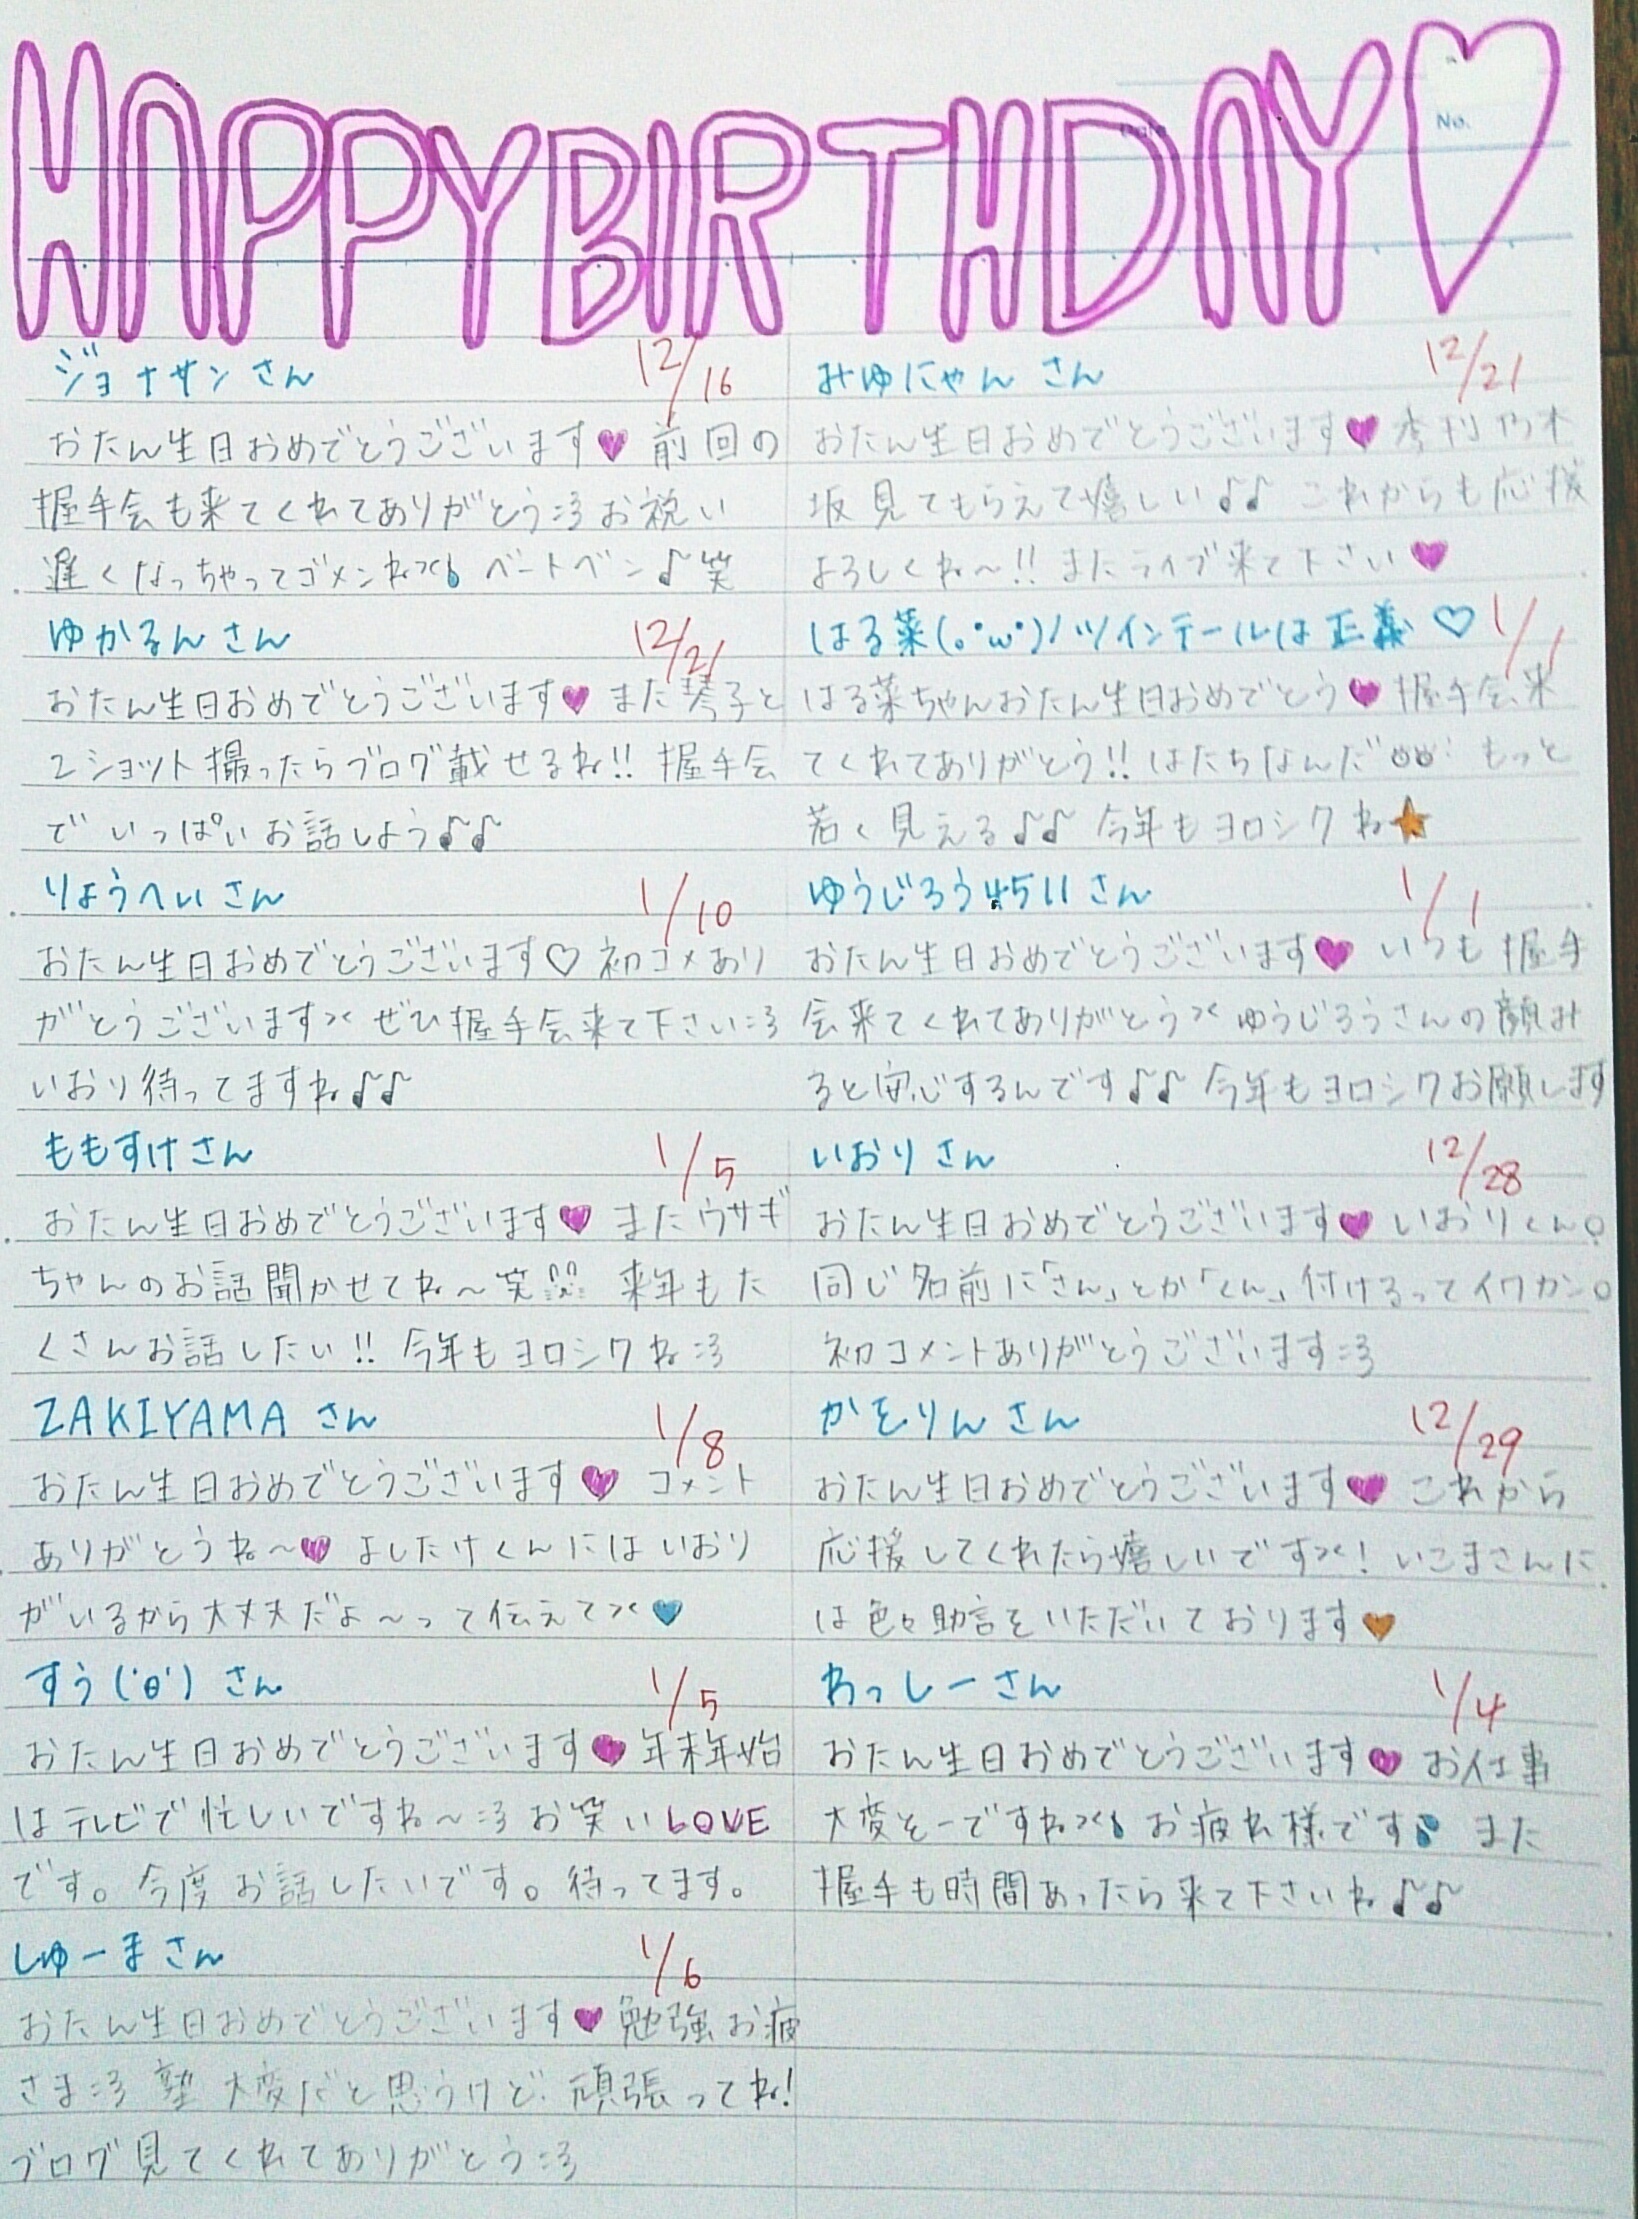 HAPPYBIRTHDAY♡
Date
No.
ジョナサンさん 12/16
おたん生日おめでとうございます♥ 前回の
握手会も来てくれてありがとう:3 お祝い
遅くなっちゃってゴメンね>< ベートベン♪笑
みゆにゃんさん 12/21
おたん生日おめでとうございます♥ 季刊乃木
坂見てもらえて嬉しい♪♪ これからも応援
よろしくね〜!! またライブ来て下さい♥
ゆかるんさん 12/21
おたん生日おめでとうございます♥ また琴子と
2ショット撮ったらブログ載せるね!! 握手会
でいっぱいお話しよう♪♪
はる菜(。・ω・)ノツインテールは正義♡ 1/1
はる菜ちゃんおたん生日おめでとう♥ 握手会来
てくれてありがとう!! はたちなんだ もっと
若く見える♪♪ 今年もヨロシクね★
りょうへいさん 1/10
おたん生日おめでとうございます♡ 初コメあり
がとうございます>< ぜひ握手会来て下さい:3
いおり待ってますね♪♪
ゆうじろう4511さん 1/1
おたん生日おめでとうございます♥ いつも握手
会来てくれてありがとう>< ゆうじろうさんの顔み
ると安心するんです♪♪ 今年もヨロシクお願します
ももすけさん 1/5
おたん生日おめでとうございます♥ またウサギ
ちゃんのお話聞かせてね〜笑 来年もた
くさんお話したい!! 今年もヨロシクね:3
いおりさん 12/28
おたん生日おめでとうございます♥ いおりくん。
同じ名前に「さん」とか「くん」付けるってイワカン。
初コメントありがとうございます:3
ZAKIYAMAさん 1/8
おたん生日おめでとうございます♥ コメント
ありがとうね〜♥ よしたけくんにはいおり
がいるから大丈夫だよ〜って伝えて><♥
かをりんさん 12/29
おたん生日おめでとうございます♥ これから
応援してくれたら嬉しいです><! いこまさんに
は色々助言をいただいております♥
すう('θ')さん 1/5
おたん生日おめでとうございます♥ 年末年始
はテレビで忙しいですね〜:3 お笑いLOVE
です。今度お話したいです。待ってます。
わっしーさん 1/4
おたん生日おめでとうございます♥ お仕事
大変そーですね>< お疲れ様です また
握手も時間あったら来て下さいね♪♪
しゅーまさん 1/6
おたん生日おめでとうございます♥ 勉強お疲
さま:3 塾大変だと思うけど頑張ってね!
ブログ見てくれてありがとう:3